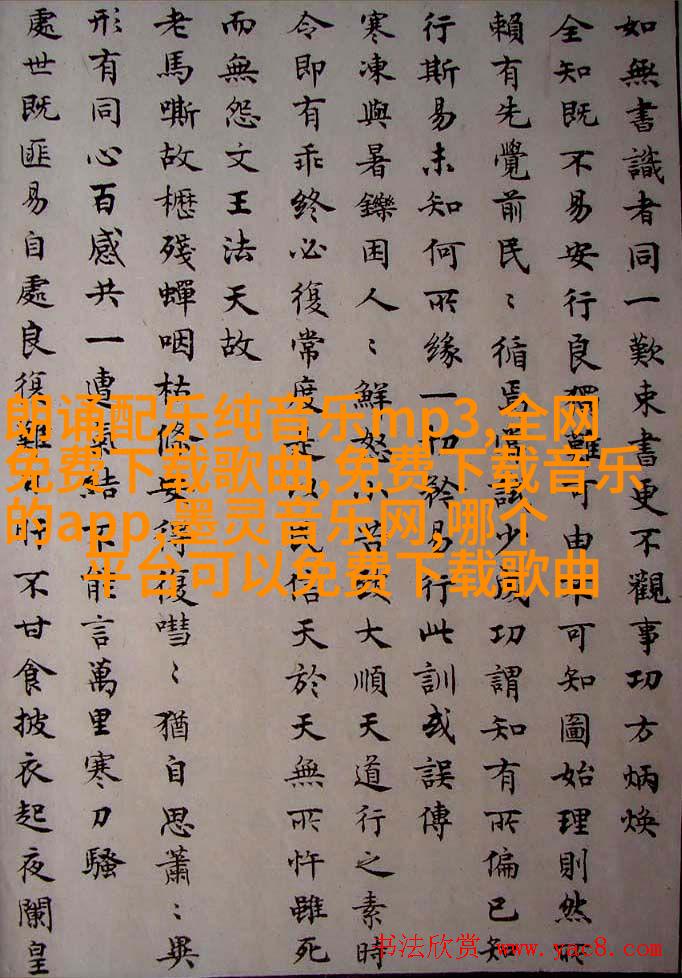 如無書識者同一歎束書更不觀事功方炳煥
全知既不易安行良獨難可由不可知圖始理則然所
賴有先覺前民〻循焉試少成功謂知有所偏已知
行斯易未知何所緣一切矜易行此訓或誤傳
寒凍與暑鑠困人〻鮮怒小苦大順天道行之素時
令即有乖終必復常度是以民信天於天無所忤雖死
而無怨文王法天故
老馬嘶故櫪殘蟬咽枯條安得復嘒〻猶自思蕭〻異
形有同心百感共一遭氣結不能言萬里寒刀騷
處世既匪易自處良復難行不甘食披衣起夜闌皇
朗诵配乐纯音乐mp3,全网
免费下载歌曲,免费下载音乐
的app,墨灵音乐网,哪个
平台可以免费下载歌曲
书法欣赏 www.yac8.com